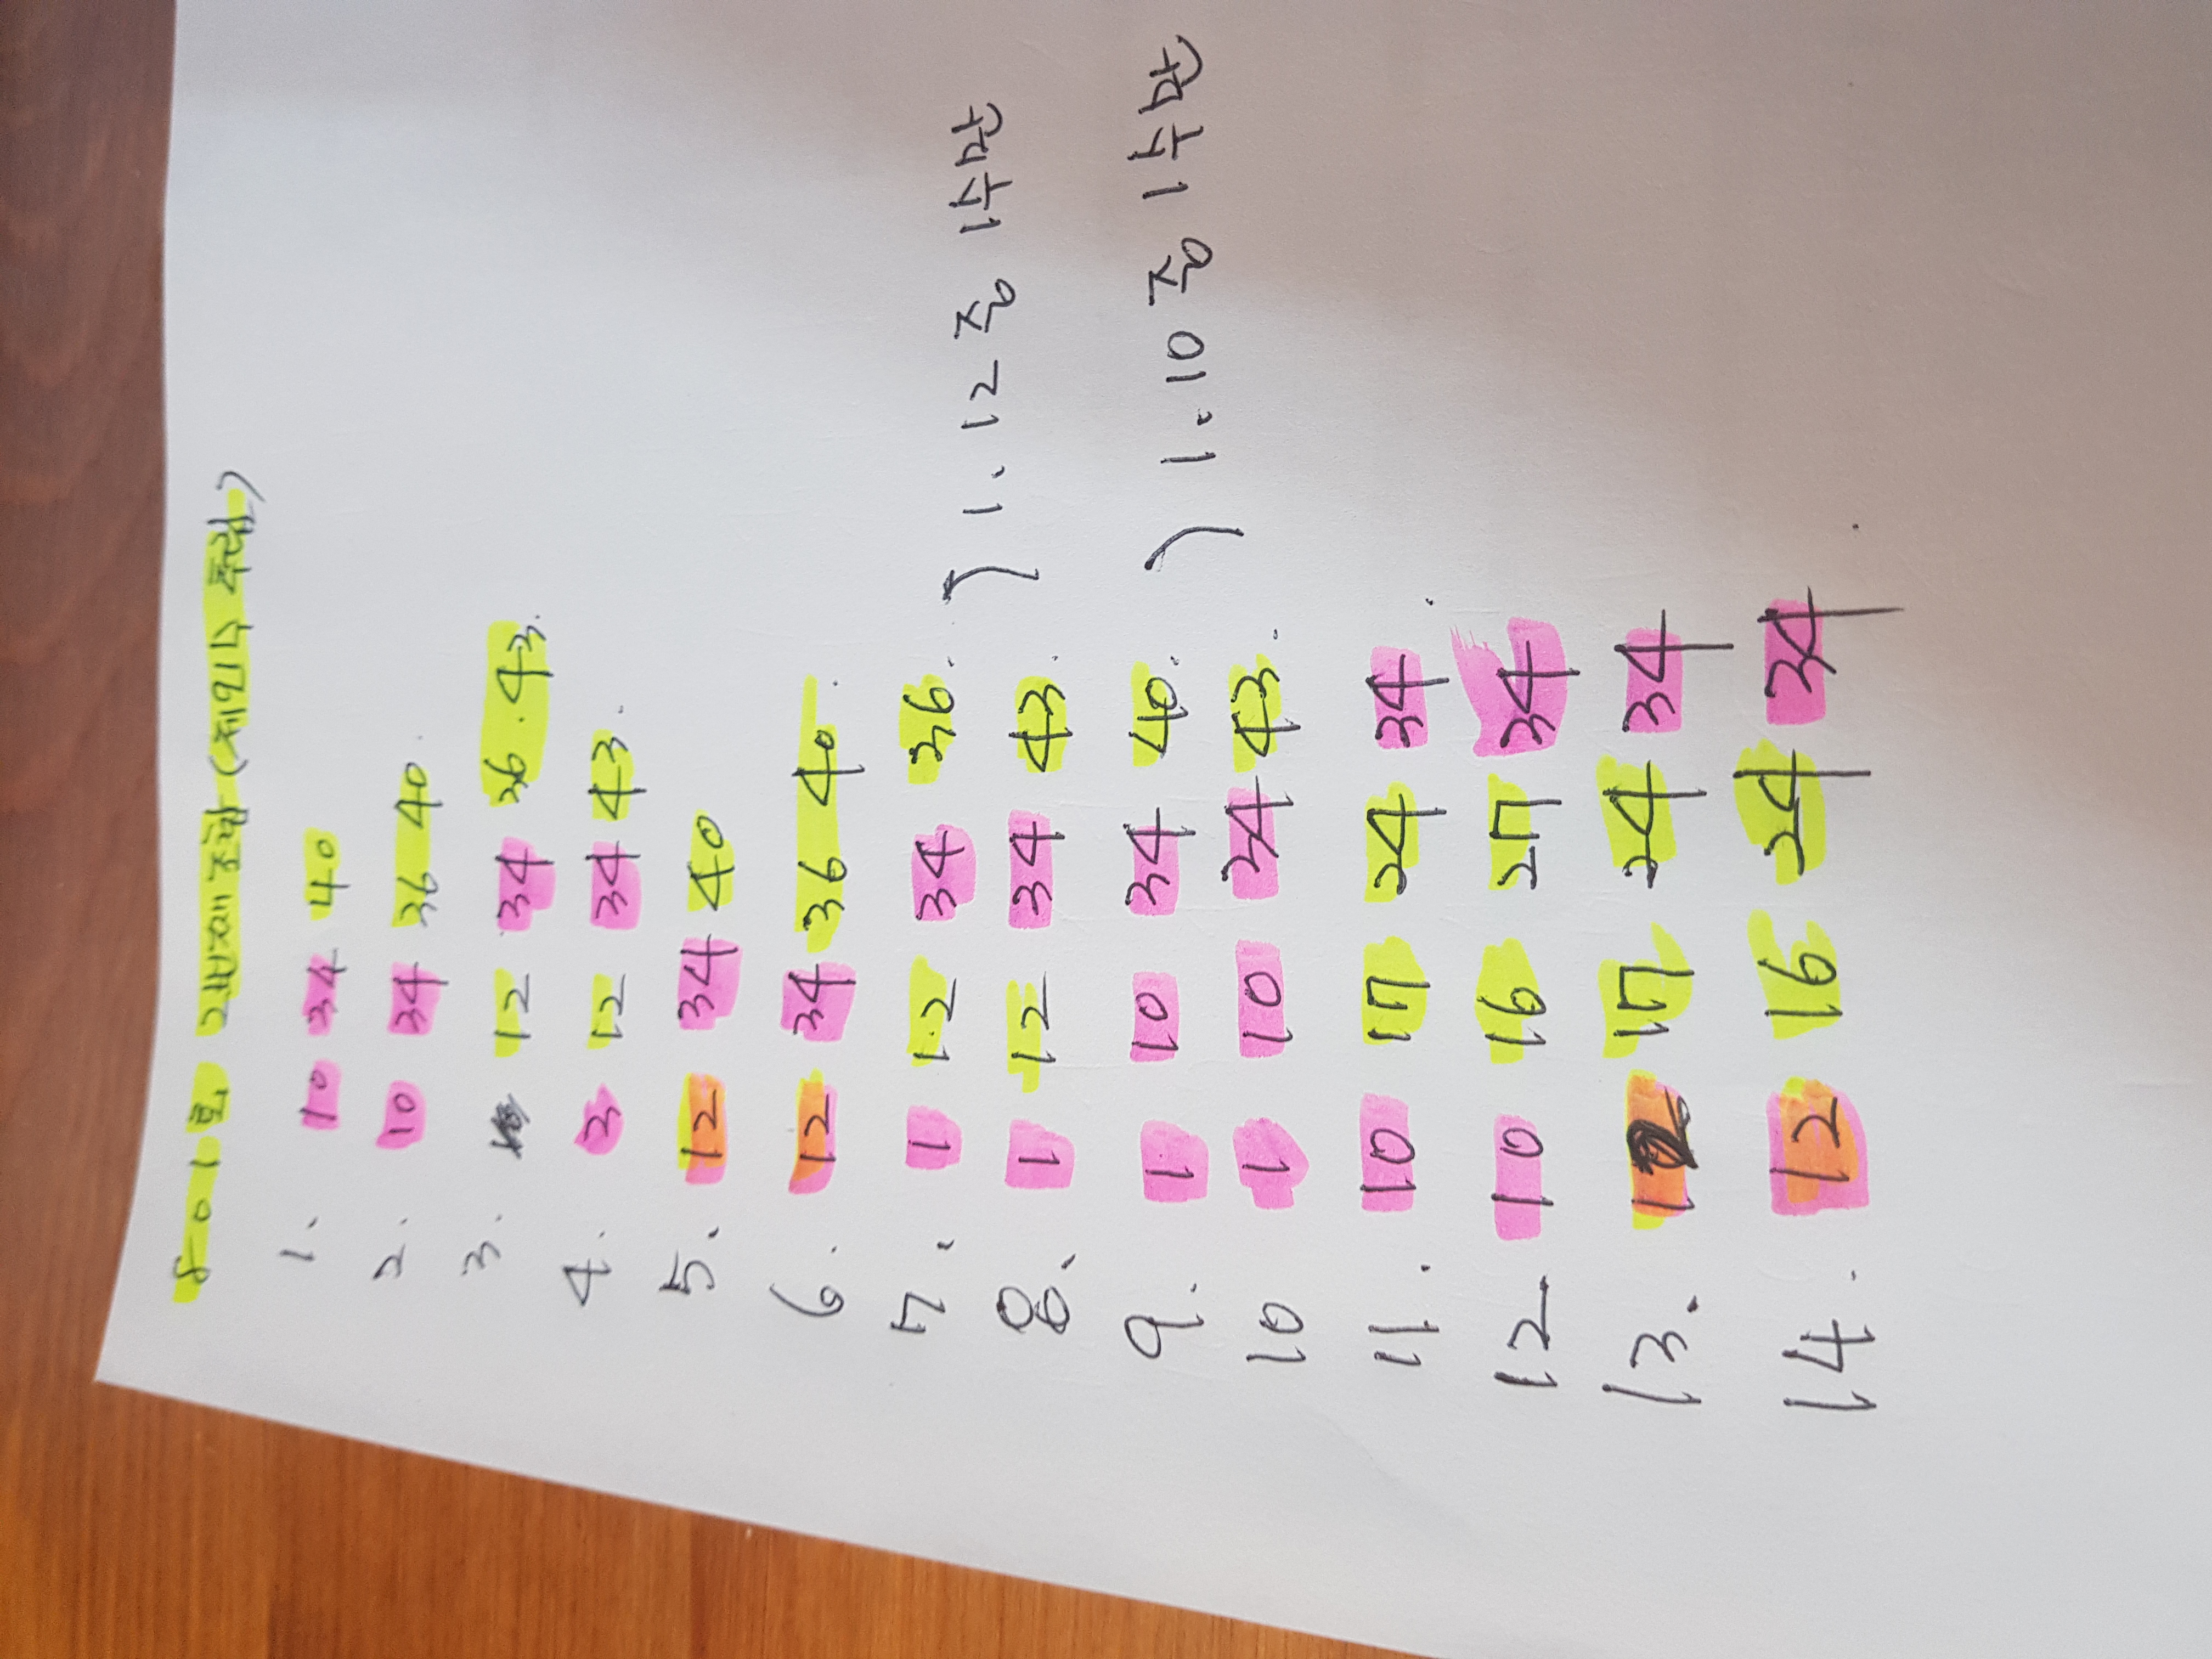 801회 2매째 조합 (제외수 포함)
1. 10 34 40
2. 10 34 36 40.
3. 12 34 36. 43.
4. 3 12 34 43.
5. 12 34 40
6. 12 34 36 40.
7. 1 12 34 36.
8. 1 12 34 43. ) 1. 12 중 1수만
9. 1 10 34 40.
10 1 10 34 43. ) 1. 10 중 1수만
11. 10 17 24 34
12 10 16 27 34
13. 12 17 24 34
14. 12 16 24 34